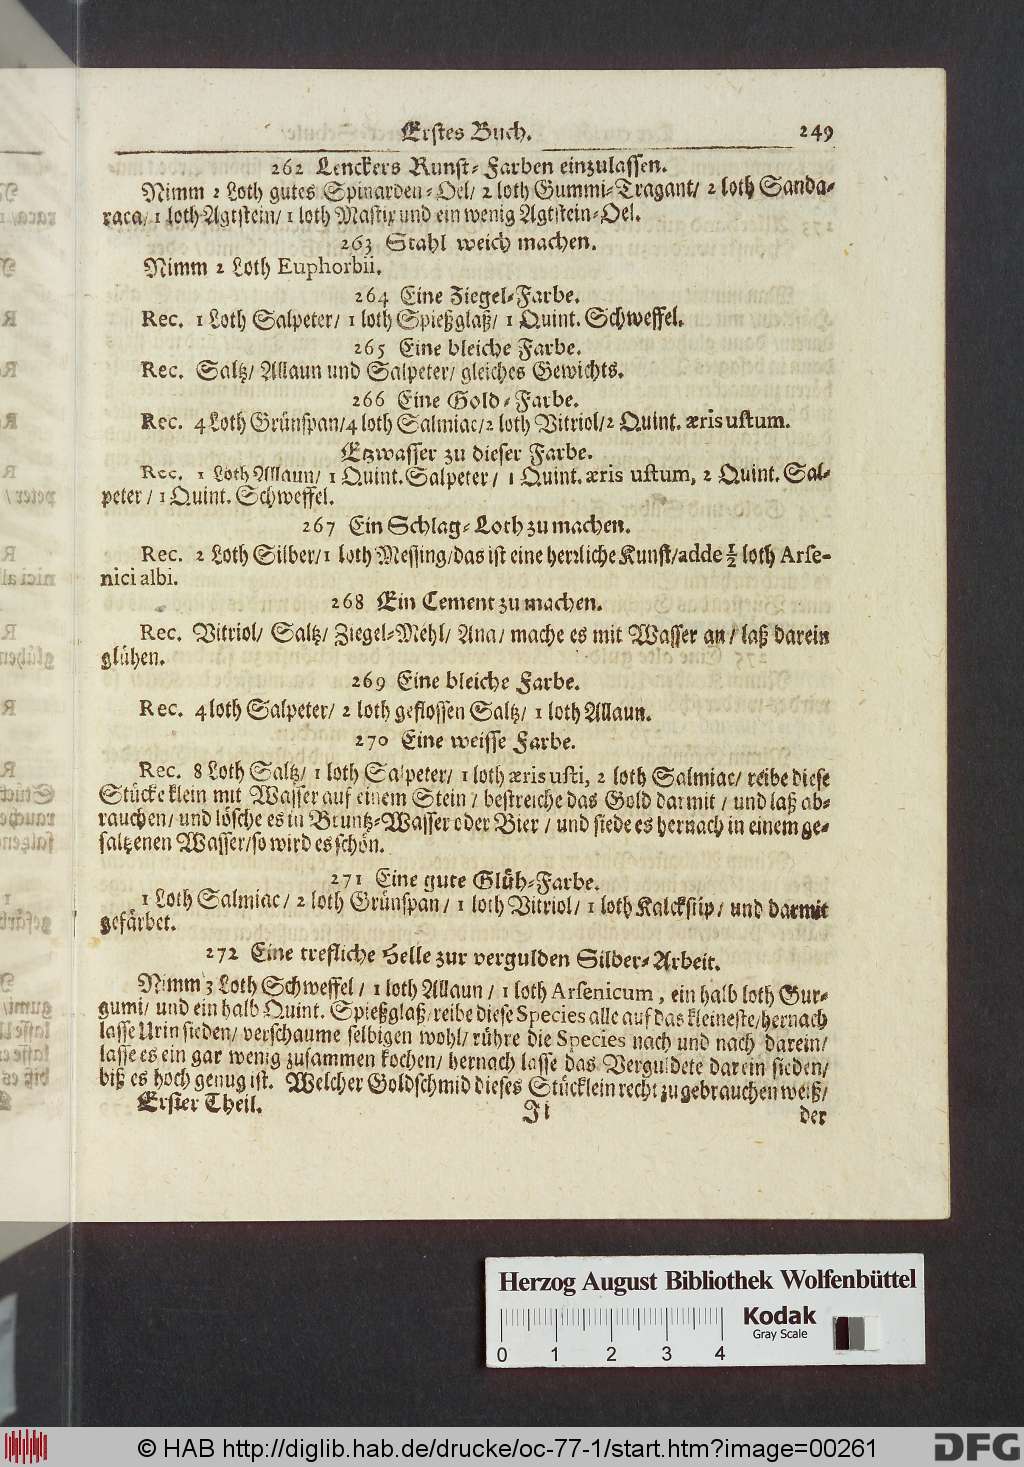 Erstes Buch. 249
262 Lenckers Kunst-Farben einzulassen.
Nimm 2 Loth gutes Spinarden-Oel/ 2 loth Gummi-Tragant/ 2 loth Sanda-
raca/ 1 loth Agtstein/ 1 loth Mastix und ein wenig Agtstein-Oel.
263 Stahl weich machen.
Nimm 2 Loth Euphorbii.
264 Eine Ziegel-Farbe.
Rec. 1 Loth Salpeter/ 1 loth Spießglaß/ 1 Quint. Schweffel.
265 Eine bleiche Farbe.
Rec. Saltz/ Allaun und Salpeter/ gleiches Gewichts.
266 Eine Gold-Farbe.
Rec. 4 Loth Grünspan/ 4 loth Salmiac/ 2 loth Vitriol/ 2 Quint. æris ustum.
Etzwasser zu dieser Farbe.
Rec. 1 Loth Allaun/ 1 Quint. Salpeter/ 1 Quint. æris ustum, 2 Quint. Sal-
peter/ 1 Quint. Schweffel.
267 Ein Schlag-Loth zu machen.
Rec. 2 Loth Silber/ 1 loth Messing/ das ist eine herrliche Kunst/ adde ½ loth Arse-
nici albi.
268 Ein Cement zu machen.
Rec. Vitriol/ Saltz/ Ziegel-Mehl/ Ana/ mache es mit Wasser an/ laß darein
glühen.
269 Eine bleiche Farbe.
Rec. 4 loth Salpeter/ 2 loth geflossen Saltz/ 1 loth Allaun.
270 Eine weisse Farbe.
Rec. 8 Loth Saltz/ 1 loth Salpeter/ 1 loth æris usti, 2 loth Salmiac/ reibe diese
Stücke klein mit Wasser auf einem Stein/ bestreiche das Gold darmit/ und laß ab-
rauchen/ und lösche es in Bruntz-Wasser oder Bier/ und siede es hernach in einem ge-
saltzenen Wasser/ so wird es schön.
271 Eine gute Glüh-Farbe.
1 Loth Salmiac/ 2 loth Grünspan/ 1 loth Vitriol/ 1 loth und darmit
gefärbet.
272 Eine trefliche Helle zur vergulden Silber-Arbeit.
Nimm 3 Loth Schweffel/ 1 loth Allaun/ 1 loth Arsenicum, ein halb loth Gur-
gumi/ und ein halb Quint. Spießglaß/ reibe diese Species alle auf das kleineste/ hernach
lasse Urin sieden/ verschaume selbigen wohl/ rühre die Species nach und nach darein/
lasse es ein gar wenig zusammen kochen/ hernach lasse das Verguldete darein sieden/
biß es hoch genug ist. Welcher Goldschmid dieses Stücklein recht zu gebrauchen weiß/
Erster Theil. Ii der
Herzog August Bibliothek Wolfenbüttel
Kodak
Gray Scale
0 1 2 3 4
© HAB http://diglib.hab.de/drucke/oc-77-1/start.htm?image=00261
DFG